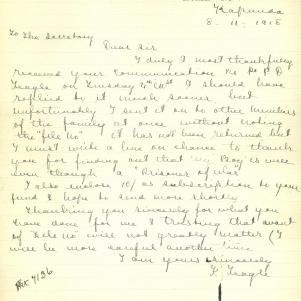 Kapunda
8-11-1918
To The Secretary
Dear Sir
I duly & most thankfully
received your Communication re Pte P D
Teagle on Tuesday I should have
replied to it much sooner but
unfortunately I sent it on to other members
of the family at once without noting
the "file No" it has not been returned but
I must write a line on chance to thank
you for finding out that my Boy is well
even though a "Prisoner of War"
I also enclose 10/ as subscription to your
fund & hope to send more shortly
Thanking you sincerely for what you
have done for me & trusting that want
of File No will not greatly matter (I
will be more careful another time
I am yours sincerely
Teagle
4196